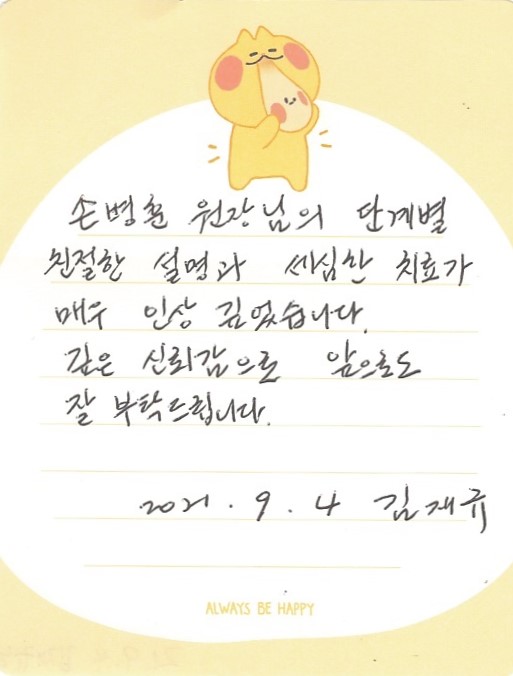 손병훈 원장님의 단계별
친절한 설명과 세심한 치료가
매우 인상 깊었습니다.
깊은 신뢰감으로 앞으로도
잘 부탁드립니다.
2021. 9. 4 김재규
ALWAYS BE HAPPY